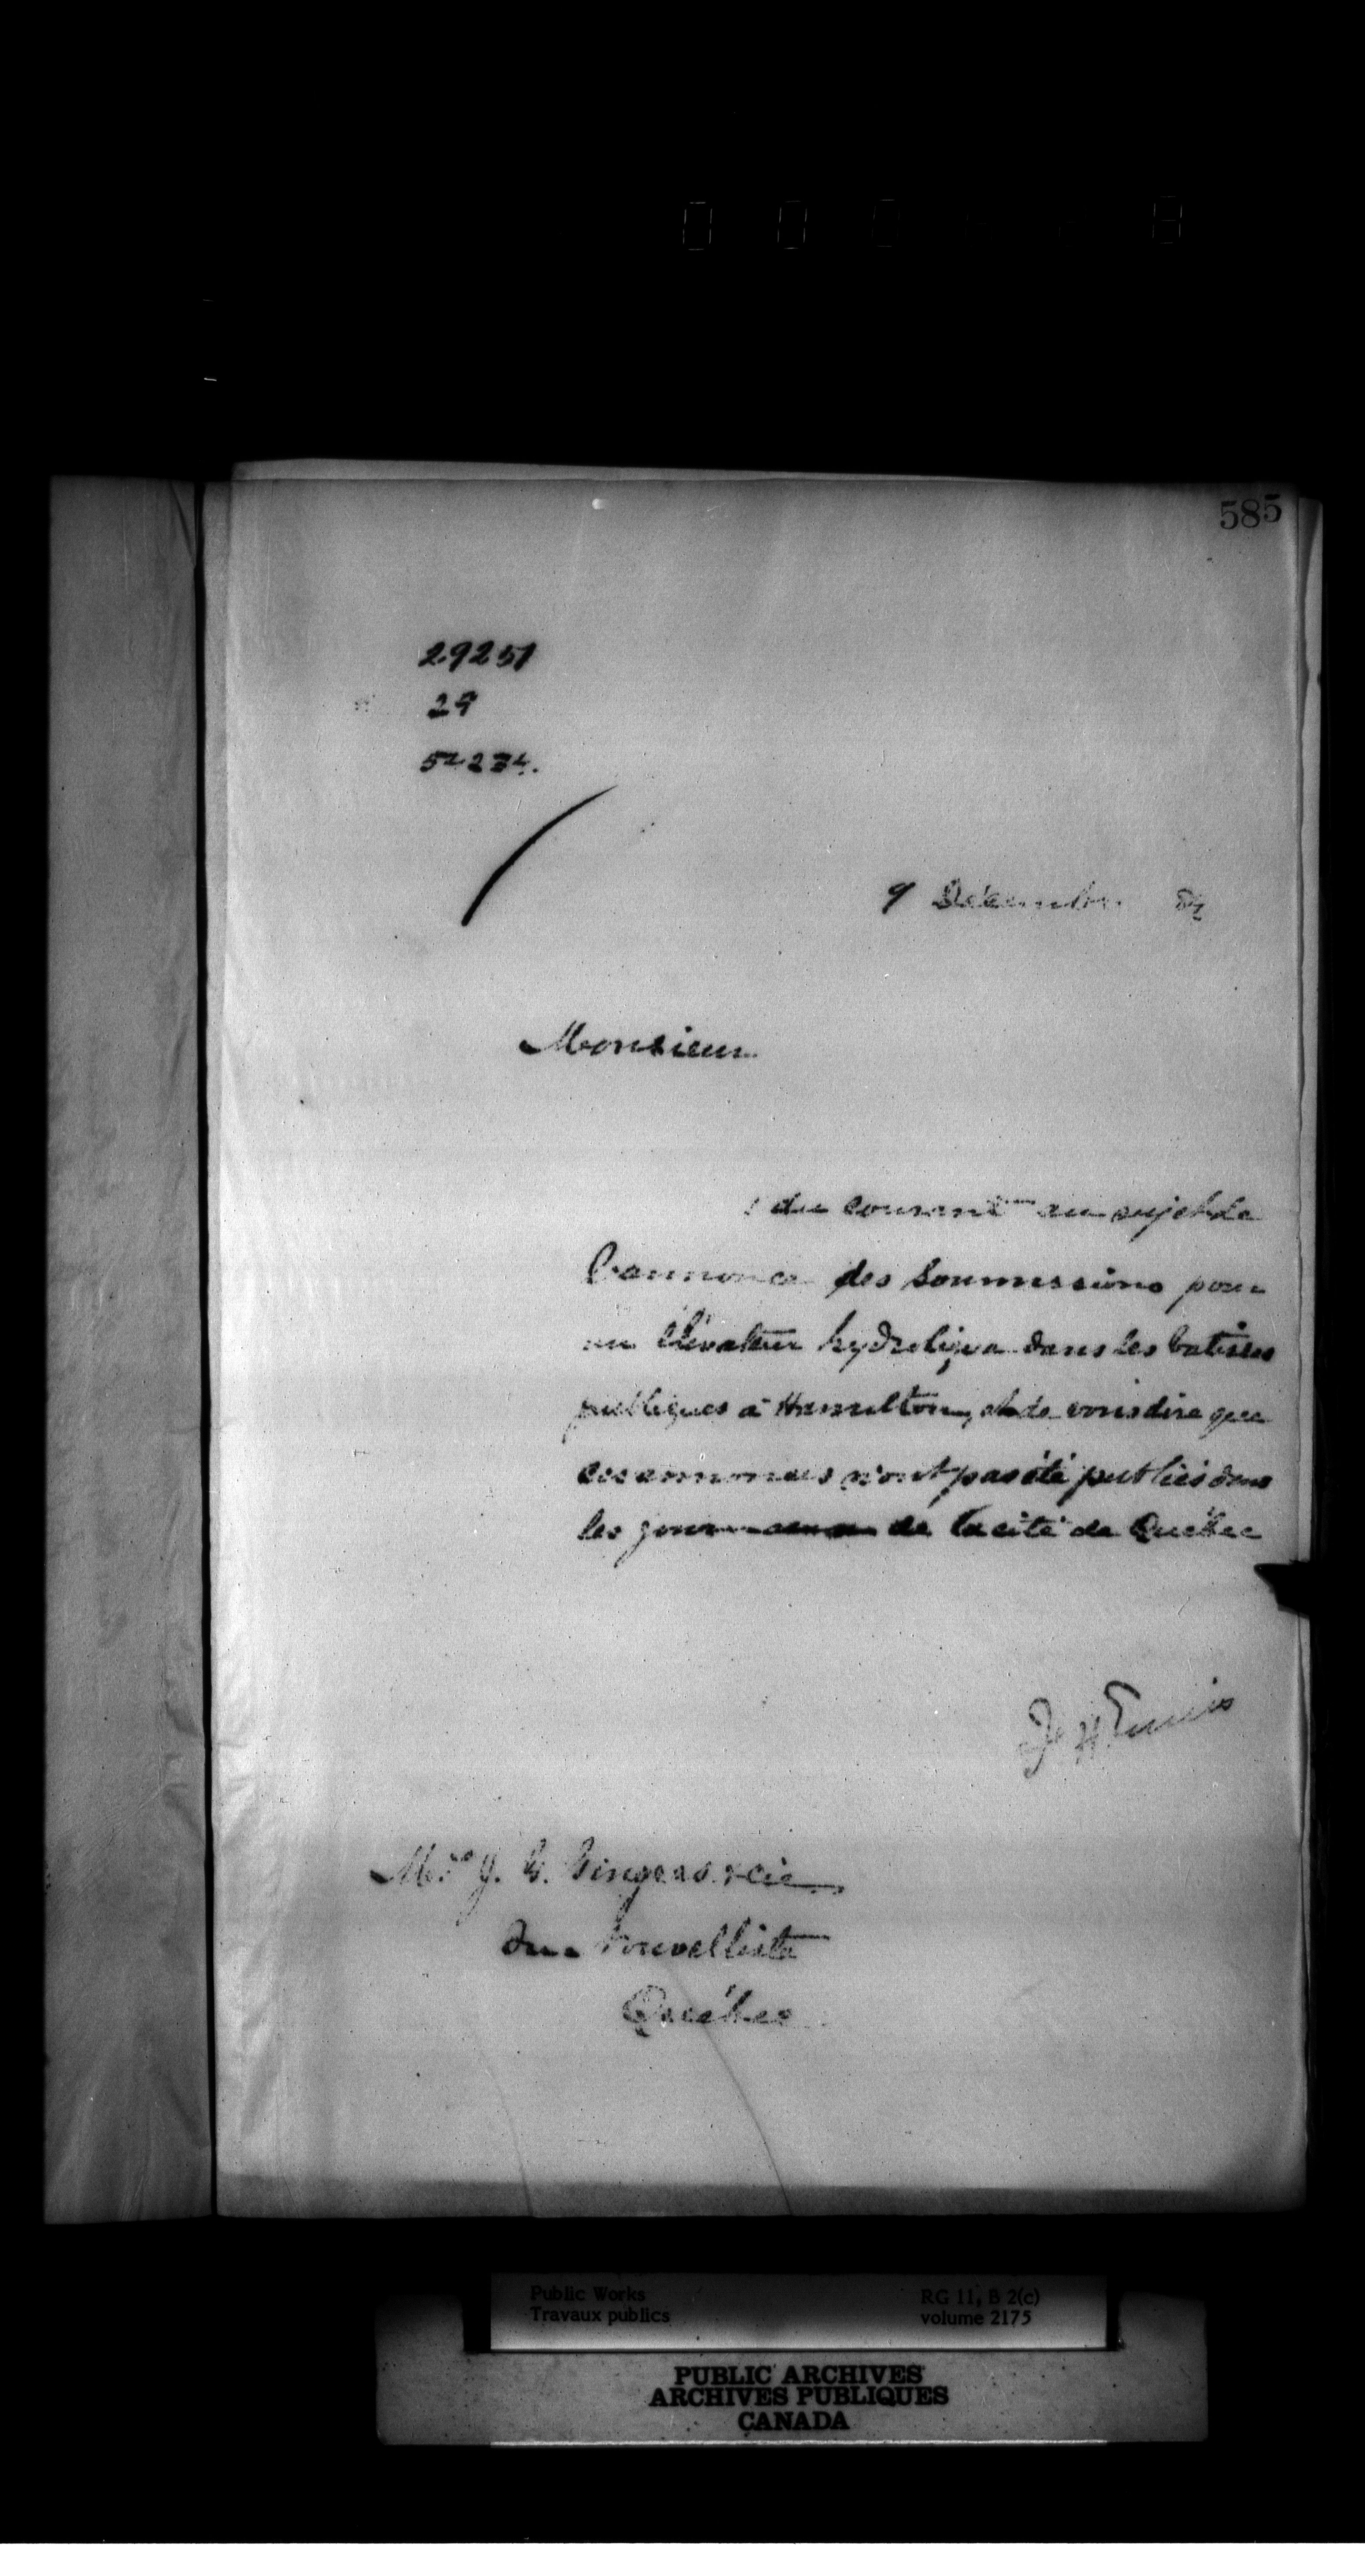 585
29251
29
54234.
9 Décembre 84
Monsieur
du courant au sujet de
l'annonce des soumissions pour
un élévateur hydroliqua dans les batisses
publiques à Hamilton, et de vous dire que
ces annonces n'ont pas été publiés dans
les de la cité de Québec
F H Ennis
Mrs J. G. Gingras & cie
Nouvelliste
Québec
Public Works
Travaux publics
RG 11, B 2(c)
volume 2175
PUBLIC ARCHIVES
ARCHIVES PUBLIQUES
CANADA